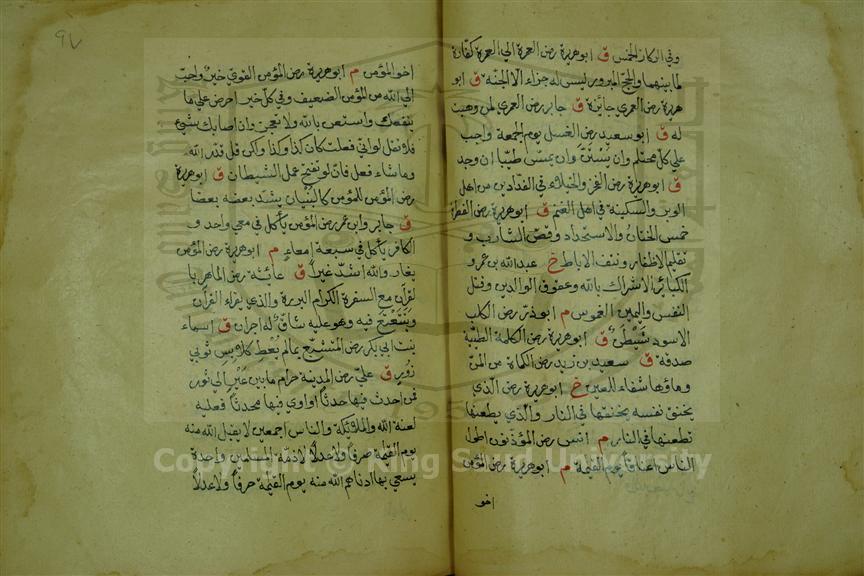 وفي الركاز الخمس ق ابوهريرة رضى العمرة الي العمرة كفارة
لما بينهما والحج المبرور ليس له جزاء الا الجنة ق ابو
هريرة رضى العمري جائزة ق جابر رضى العمري لمن وهبت
له ق ابو سعيد رضى الغسل يوم الجمعة واجب
علي كل محتلم وان يستن وان يمس طيبا ان وجد
ق ابوهريرة رضى الفخر والخيلاء في الفدادين من اهل
الوبر والسكينة في اهل الغنم ق ابوهريرة رضى الفطرة
خمس الختان والاستحداد وقص الشارب و
تقليم الاظفار ونتف الاباط خ عبد الله بن عمرو
الكبائر الاشراك بالله وعقوق الوالدين وقتل
النفس واليمين الغموس م ابو ذر رضى الكلب
الاسود شيطان ق ابوهريرة رضى الكلمة الطيبة
صدقة ق سعيد بن زيد رضى الكماة من المن
وماؤها شفاء للعين خ ابوهريرة رضى الذي
يخنق نفسه يخنقها في النار والذي يطعنها
يطعنها في النار م انس رضى المؤذنون اطول
الناس اعناقا يوم القيمة م ابوهريرة رضى المؤمن
اخو
٩٧
اخو المؤمن م ابوهريرة رضى المؤمن القوي خير واحب
الي الله من المؤمن الضعيف وفي كل خير احرص علي ما
ينفعك واستعن بالله ولا تعجز وان اصابك شيئ
فلا تقل لو اني فعلت كان كذا وكذا ولكن قل قدر الله
وما شاء فعل فان لو تفتح عمل الشيطان ق ابوهريرة
رضى المؤمن للمؤمن كالبنيان يشد بعضه بعضا
ق جابر وابن عمر رضى المؤمن يأكل في معي واحد و
الكافر يأكل في سبعة امعاء م ابوهريرة رضى المؤمن
يغار والله اشد غيرا ق عائشة رضى الماهر با
لقرآن مع السفرة الكرام البررة والذي يقراء القرآن
ويتتعتع فيه وهو عليه شاق له اجران ق اسماء
بنت ابي بكر رضى المتشبع بما لم يعط كلابس ثوبي
زور ق علي رضى المدينة حرام ما بين عير الي ثور
فمن احدث فيها حدثا او اوي فيها محدثا فعليه
لعنة الله والملئكة والناس اجمعين لا يقبل الله منه
يوم القيمة صرفا ولا عدلا ذمة المسلمين واحدة
يسعي بها ادناهم الله منه يوم القيمة صرفا ولا عدلا
Copyright © King Saud University